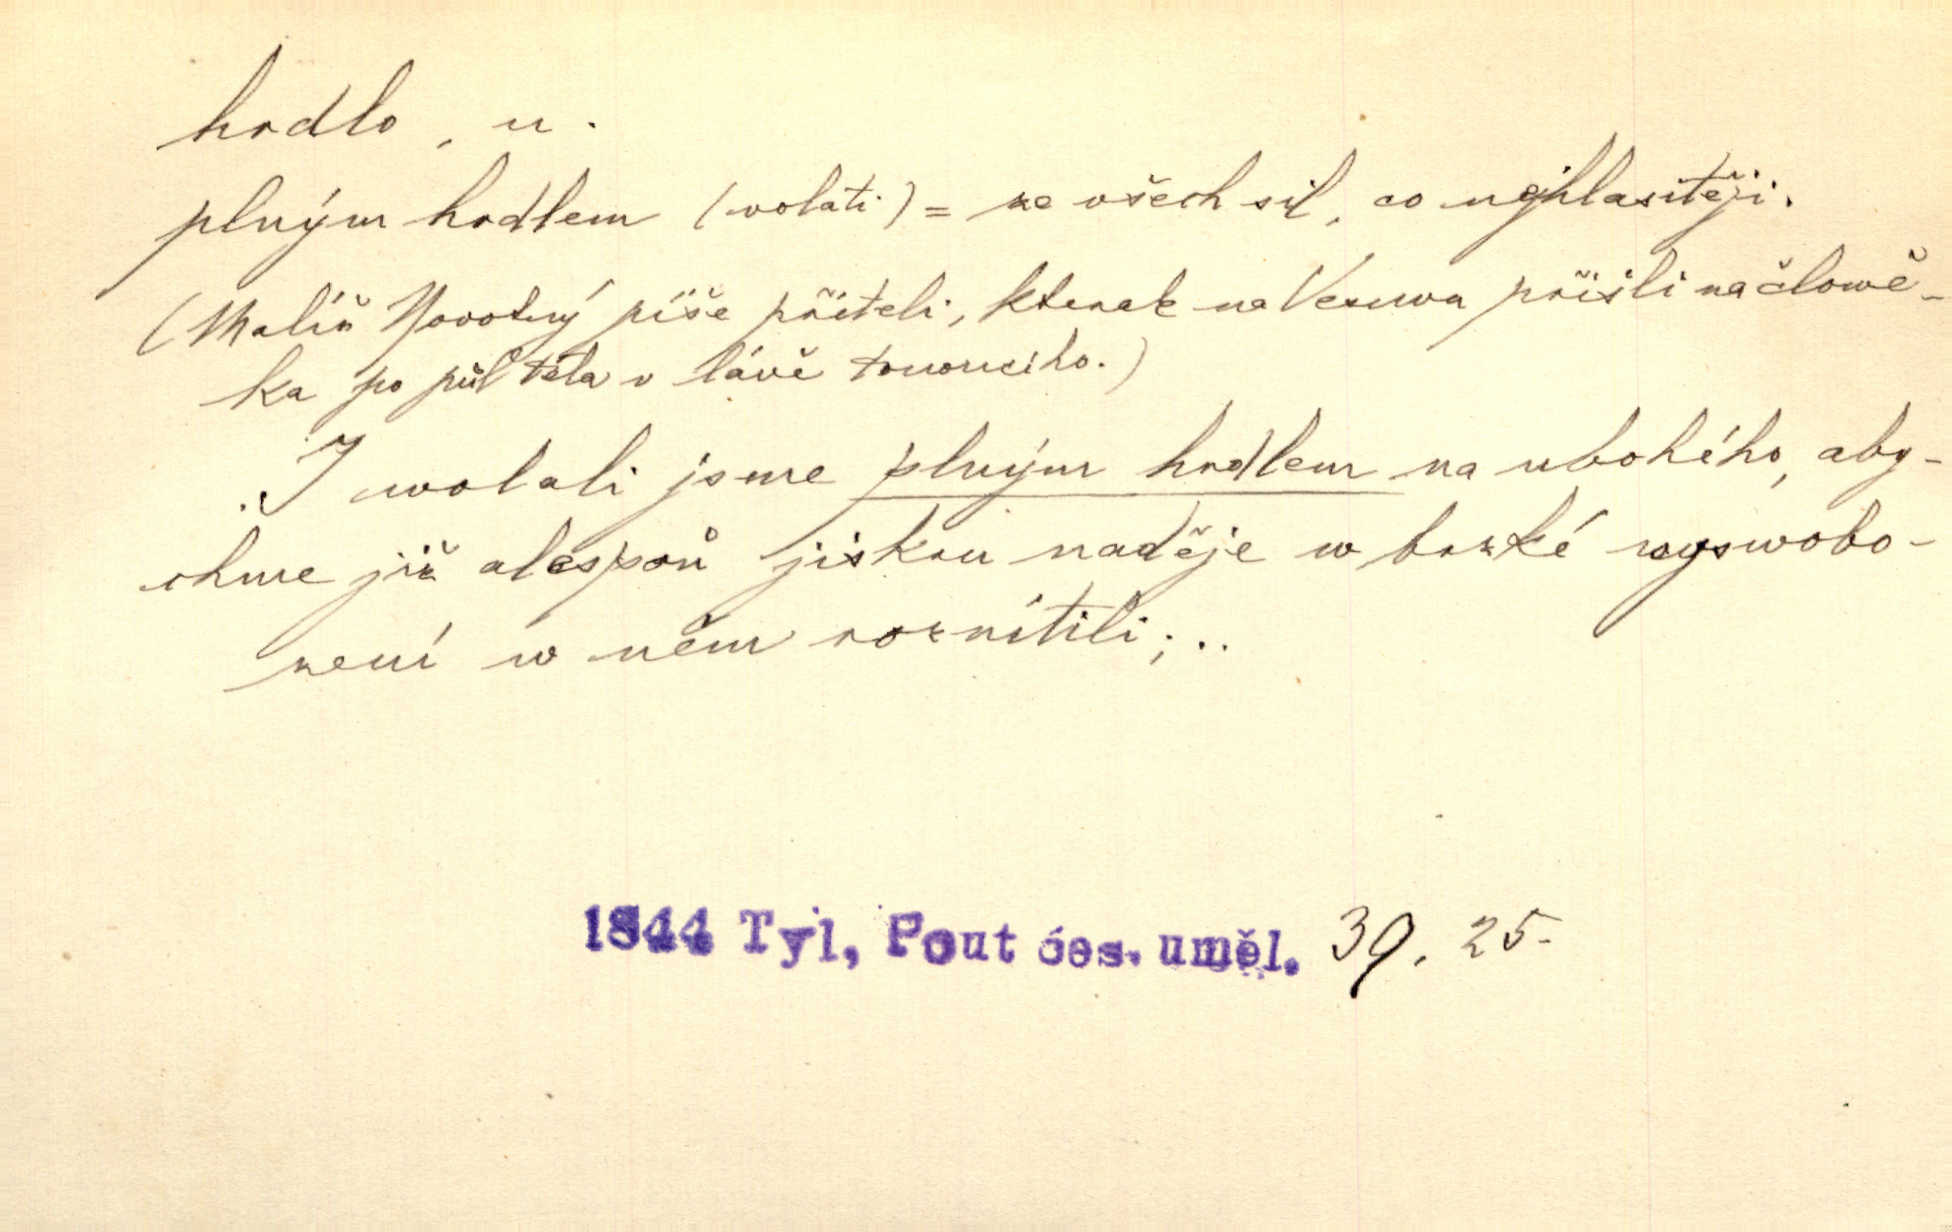 hrdlo, n.
plným hrdlem (volati) = ze všech sil, co nejhlasitěji.
(Malíř Novotný píše příteli, kterak na Vesuva přišli na člowě-
ka po půl těla v lávě tonoucího.)
I wolali jsme plným hrdlem na ubohého, aby-
chme již alespoň jiskru naděje w brzké wyswobo-
zení w něm roznítili; ..
1844 Tyl, Pout čes. uměl. 39. 25.